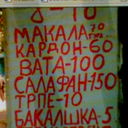 МАКАЛА 20 ГРА.
КАРДОН-60
ВАТА-100
САЛАФАН-150
ТРПЕ-10
БАКАЛШКА-5